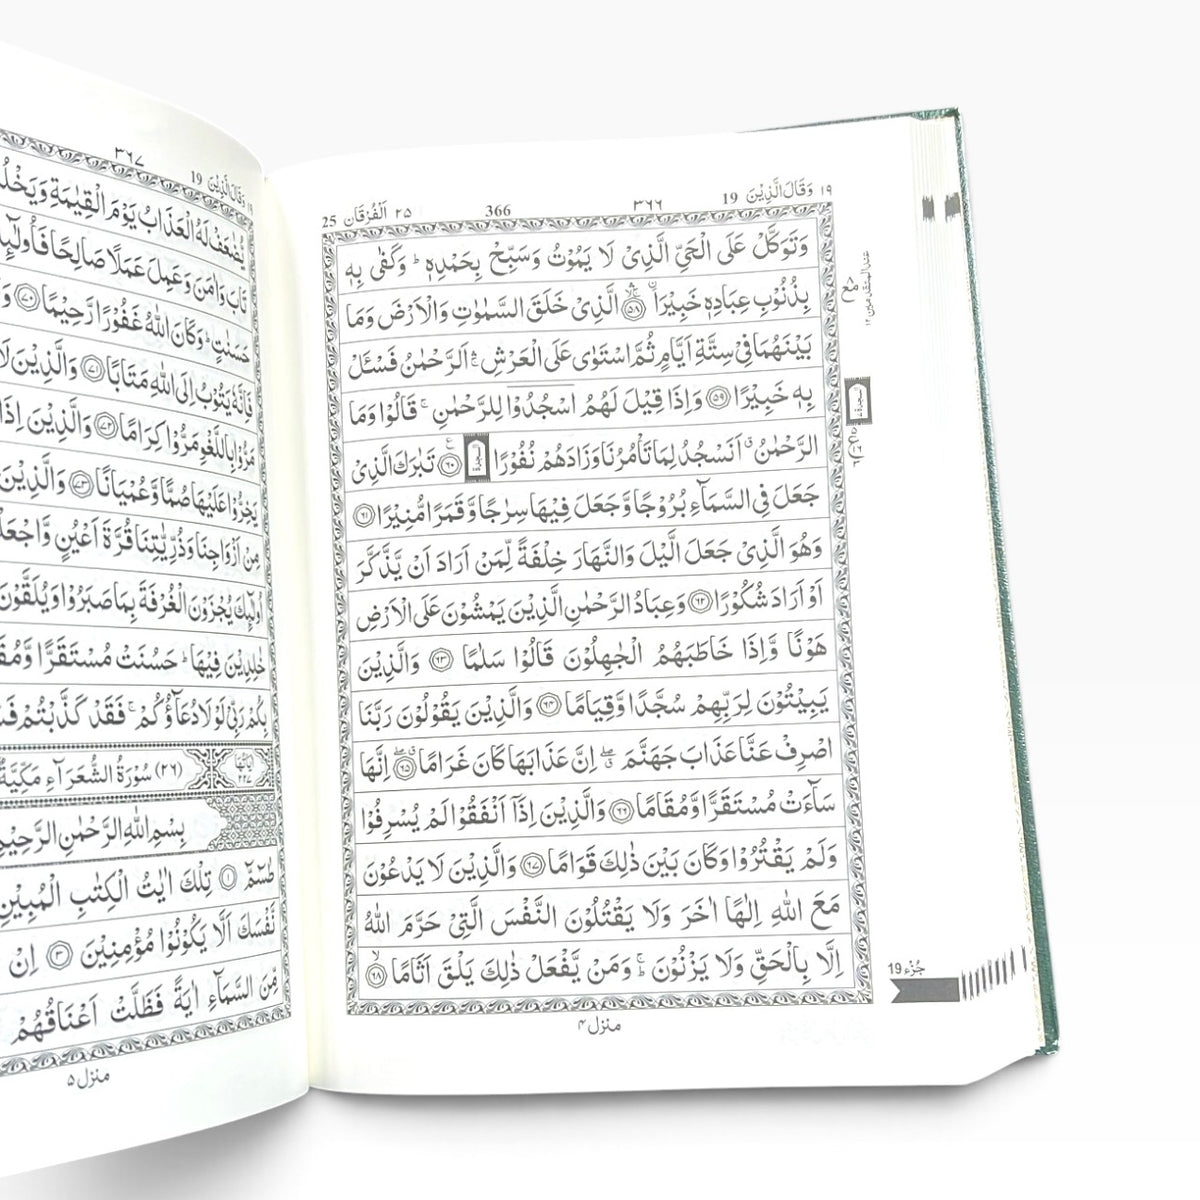 ١٩ وَقَالَ الَّذِيْنَ 19
٣٦٦
366
٢٥ اَلْفُرْقَان 25
وَتَوَكَّلْ عَلَى الْحَيِّ الَّذِيْ لَا يَمُوْتُ وَسَبِّحْ بِحَمْدِهٖ ؕ وَكَفٰى بِهٖ
بِذُنُوْبِ عِبَادِهٖ خَبِيْرًا ۙ ﴿٥٨﴾ الَّذِيْ خَلَقَ السَّمٰوٰتِ وَالْاَرْضَ وَمَا
بَيْنَهُمَا فِيْ سِتَّةِ اَيَّامٍ ثُمَّ اسْتَوٰى عَلَى الْعَرْشِ ۛۚ اَلرَّحْمٰنُ فَسْـَٔلْ
بِهٖ خَبِيْرًا ﴿٥٩﴾ وَاِذَا قِيْلَ لَهُمُ اسْجُدُوْا لِلرَّحْمٰنِ ۚ قَالُوْا وَمَا
الرَّحْمٰنُ ۗ اَنَسْجُدُ لِمَا تَاْمُرُنَا وَزَادَهُمْ نُفُوْرًا ﴿٦٠﴾ تَبٰرَكَ الَّذِيْ
جَعَلَ فِي السَّمَآءِ بُرُوْجًا وَّجَعَلَ فِيْهَا سِرٰجًا وَّقَمَرًا مُّنِيْرًا ﴿٦١﴾
وَهُوَ الَّذِيْ جَعَلَ الَّيْلَ وَالنَّهَارَ خِلْفَةً لِّمَنْ اَرَادَ اَنْ يَّذَّكَّرَ
اَوْ اَرَادَ شُكُوْرًا ﴿٦٢﴾ وَعِبَادُ الرَّحْمٰنِ الَّذِيْنَ يَمْشُوْنَ عَلَى الْاَرْضِ
هَوْنًا وَّاِذَا خَاطَبَهُمُ الْجٰهِلُوْنَ قَالُوْا سَلٰمًا ﴿٦٣﴾ وَالَّذِيْنَ
يَبِيْتُوْنَ لِرَبِّهِمْ سُجَّدًا وَّقِيَامًا ﴿٦٤﴾ وَالَّذِيْنَ يَقُوْلُوْنَ رَبَّنَا
اصْرِفْ عَنَّا عَذَابَ جَهَنَّمَ ۖ اِنَّ عَذَابَهَا كَانَ غَرَامًا ۖ ﴿٦٥﴾ اِنَّهَا
سَآءَتْ مُسْتَقَرًّا وَّمُقَامًا ﴿٦٦﴾ وَالَّذِيْنَ اِذَآ اَنْفَقُوْا لَمْ يُسْرِفُوْا
وَلَمْ يَقْتُرُوْا وَكَانَ بَيْنَ ذٰلِكَ قَوَامًا ﴿٦٧﴾ وَالَّذِيْنَ لَا يَدْعُوْنَ
مَعَ اللّٰهِ اِلٰهًا اٰخَرَ وَلَا يَقْتُلُوْنَ النَّفْسَ الَّتِيْ حَرَّمَ اللّٰهُ
اِلَّا بِالْحَقِّ وَلَا يَزْنُوْنَ ۚ وَمَنْ يَّفْعَلْ ذٰلِكَ يَلْقَ اَثَامًا ۙ ﴿٦٨﴾
منزل ۴
جُزْء 19
١٩ وَقَالَ الَّذِيْنَ 19
٣٦٧
يُّضٰعَفْ لَهُ الْعَذَابُ يَوْمَ الْقِيٰمَةِ وَيَخْلُ
تَابَ وَاٰمَنَ وَعَمِلَ عَمَلًا صَالِحًا فَاُولٰٓئِ
حَسَنٰتٍ ؕ وَكَانَ اللّٰهُ غَفُوْرًا رَّحِيْمًا ﴿٧٠﴾
فَاِنَّهٗ يَتُوْبُ اِلَى اللّٰهِ مَتَابًا ﴿٧١﴾ وَالَّذِيْنَ لَا
مَرُّوْا بِاللَّغْوِ مَرُّوْا كِرَامًا ﴿٧٢﴾ وَالَّذِيْنَ اِذَا
يَخِرُّوْا عَلَيْهَا صُمًّا وَّعُمْيَانًا ﴿٧٣﴾ وَالَّذِيْنَ
مِنْ اَزْوَاجِنَا وَذُرِّيّٰتِنَا قُرَّةَ اَعْيُنٍ وَّاجْعَلْ
اُولٰٓئِكَ يُجْزَوْنَ الْغُرْفَةَ بِمَا صَبَرُوْا وَيُلَقَّوْنَ
خٰلِدِيْنَ فِيْهَا ؕ حَسُنَتْ مُسْتَقَرًّا وَّمُقَ
بِكُمْ رَبِّيْ لَوْلَا دُعَآؤُكُمْ ۚ فَقَدْ كَذَّبْتُمْ فَسَ
اٰيَاتُهَا ٢٢٧
(٢٦) سُوْرَةُ الشُّعَرَآءِ مَكِّيَّةٌ
بِسْمِ اللّٰهِ الرَّحْمٰنِ الرَّحِيْمِ
طٰسٓمّٓ ﴿١﴾ تِلْكَ اٰيٰتُ الْكِتٰبِ الْمُبِيْنِ
نَّفْسَكَ اَلَّا يَكُوْنُوْا مُؤْمِنِيْنَ ﴿٣﴾ اِنْ
مِّنَ السَّمَآءِ اٰيَةً فَظَلَّتْ اَعْنَاقُهُمْ
منزل ۵